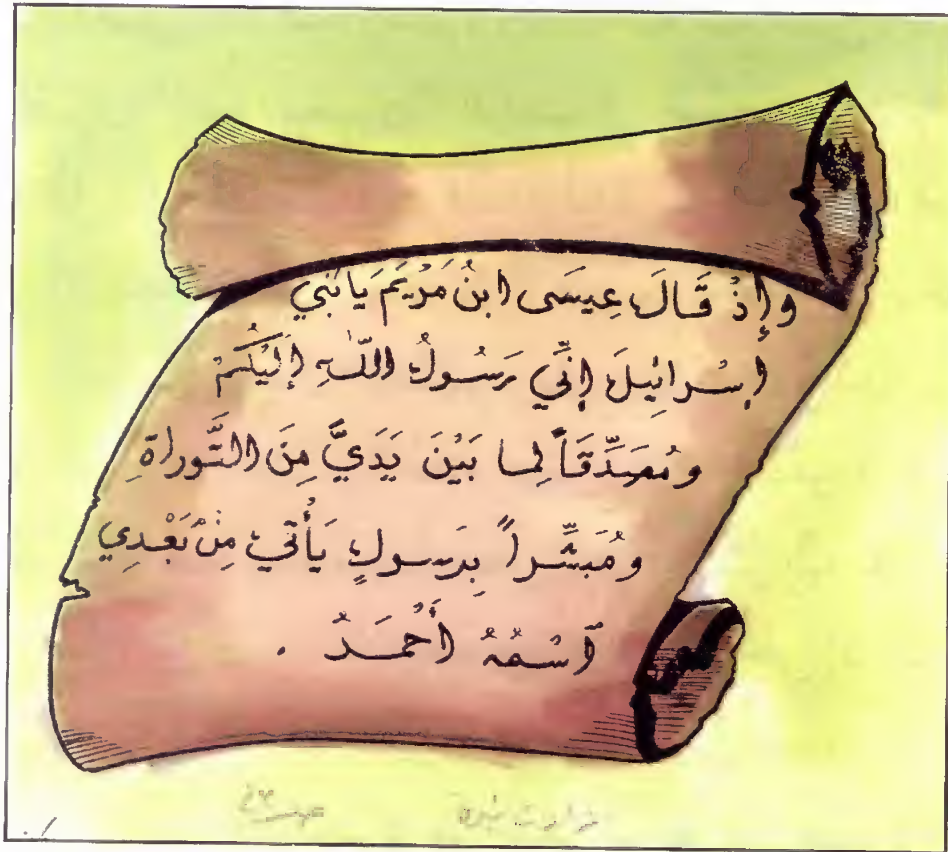 وإِذْ قَالَ عِيسَى ابنُ مَرْيَمَ يَابَنِي
إسْرائِيلَ إِنِّي رَسُولُ اللَّهِ إِلَيْكُمْ
ومُصَدِّقَاً لِما بَيْنَ يَدَيَّ مِنَ التَّوراةِ
ومُبَشِّراً بِرَسولٍ يَأْتي مِنْ بَعْدِي
آسْمُهُ أَحْمَدُ .